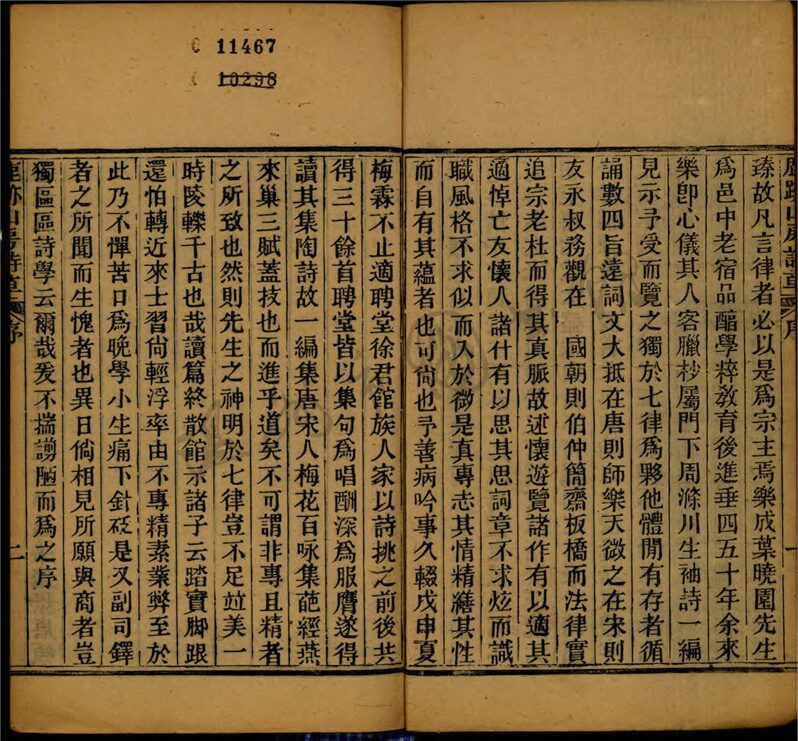 11467
10298
臻故凡言律者必以是爲宗主焉樂成葉曉園先生
爲邑中老宿品酯學粹敎育後進垂四五十年余來
樂卽心儀其人客臘杪屬門下周滌川生袖詩一編
見示予受而覽之獨於七律爲夥他體閒有存者循
誦數四旨遠詞文大抵在唐則師樂天微之在宋則
友永叔務觀在 國朝則伯仲簡齋板橋而法律實
追宗老杜而得其真脈故述懷遊覽諸作有以適其
適悼亡友懷人諸什有以思其思詞章不求炫而識
職風格不求似而入於微是真專志其情精繕其性
而自有其蘊者也可尙也予善病吟事久輟戊申夏
一
梅霖不止適聘堂徐君館族人家以詩挑之前後共
得三十餘首聘堂皆以集句爲唱酬深爲服膺遂得
讀其集陶詩故一編集唐宋人梅花百咏集葩經燕
來巢三賦蓋技也而進乎道矣不可謂非專且精者
之所致也然則先生之神明於七律豈不足竝美一
時陵轢千古也哉讀篇終散館示諸子云踏實脚跟
還怕轉近來士習尙輕浮率由不專精素業弊至於
此乃不憚苦口爲晚學小生痛下針砭是又副司鐸
者之所聞而生愧者也異日倘相見所願與商者豈
獨區區詩學云爾哉爰不揣謭陋而爲之序
鹿跡山房詩草 序
二